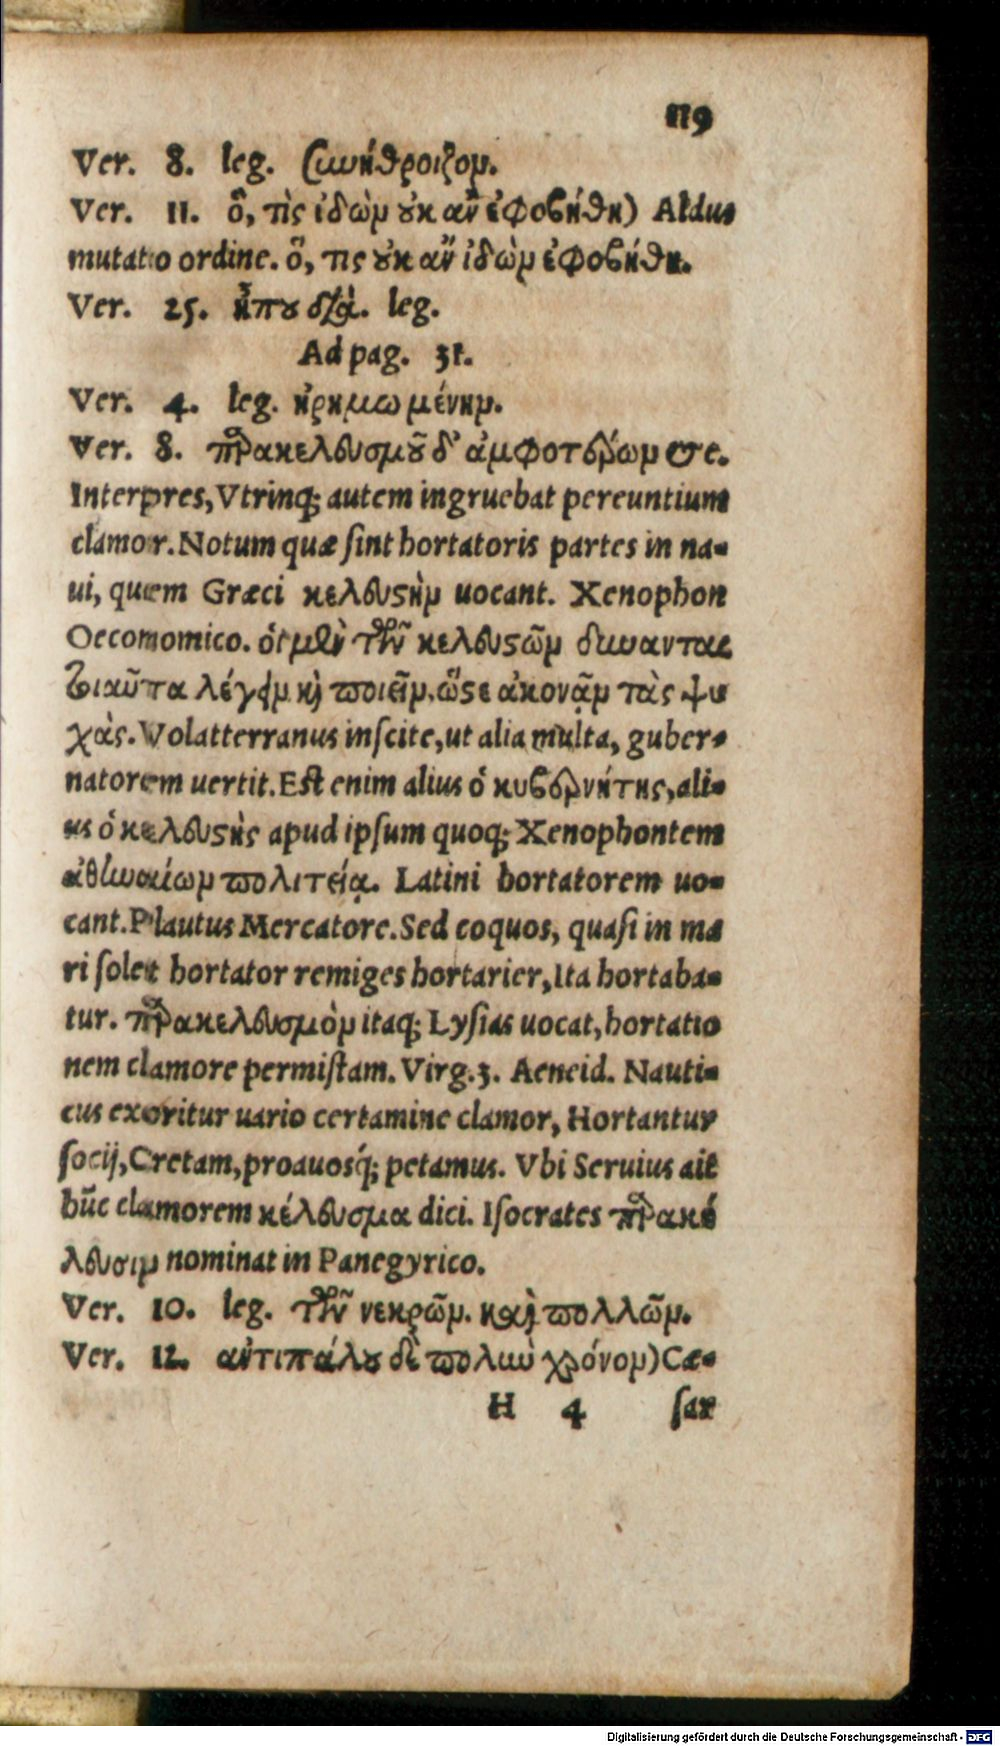 119
Ver. 8. leg. συνήθροιζον.
Ver. 11. ὃ, τὶς ἰδὼν οὐκ ἂν ἐφοβήθη) Aldus
mutato ordine. ὃ, τις οὐκ ἂν ἰδὼν ἐφοβήθη.
Ver. 25. ἦπου διὰ. leg.
Ad pag. 31.
Ver. 4. leg. ἠρημωμένην.
Ver. 8. παρακελευσμοῦ δ' ἀμφοτέρων σε.
Interpres, Vtrinq; autem ingruebat pereuntium
clamor. Notum quæ ſint hortatoris partes in na-
ui, quem Græci κελευστὴν uocant. Xenophon
Oecomomico. οἱ μὲν τῶν κελευστῶν δύνανται
τοιαῦτα λέγειν κὶ ποιεῖν, ὥστε ἀκονᾷν τὰς ψυ
χὰς. Volatterranus inſcite, ut alia multa, guber-
natorem uertit. Eſt enim alius ὁ κυβερνήτης, ali-
us ὁ κελευστὴς apud ipſum quoq; Xenophontem
ἀθηναίων πολιτείᾳ. Latini hortatorem uo-
cant. Plautus Mercatore. Sed coquos, quaſi in ma
ri ſolet hortator remiges hortarier, Ita hortaba-
tur. παρακελευσμὸν itaq; Lyſias uocat, hortatio
nem clamore permiſtam. Virg. 3. Aeneid. Nauti-
cus exoritur uario certamine clamor, Hortantur
ſocij, Cretam, proauosq́; petamus. Vbi Seruius ait
hūc clamorem κέλευσμα dici. Iſocrates παρακέ
λευσιν nominat in Panegyrico.
Ver. 10. leg. τῶν νεκρῶν. καὶ πολλῶν.
Ver. 12. ἀντιπάλου δὲ πολὺν χρόνον) Cæ-
H 4 ſar
Digitalisierung gefördert durch die Deutsche Forschungsgemeinschaft - DFG